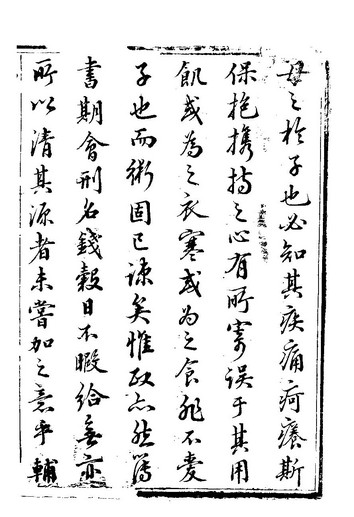 母之於子也必知其疾痛疴癢斯
保抱攜持之心有所寄误于其用
飢或為之衣寒或為之食非不愛
子也而術固已疎矣惟政亦然簿
書期會刑名錢穀日不暇給無亦
所以清其源者未嘗加之意乎輔